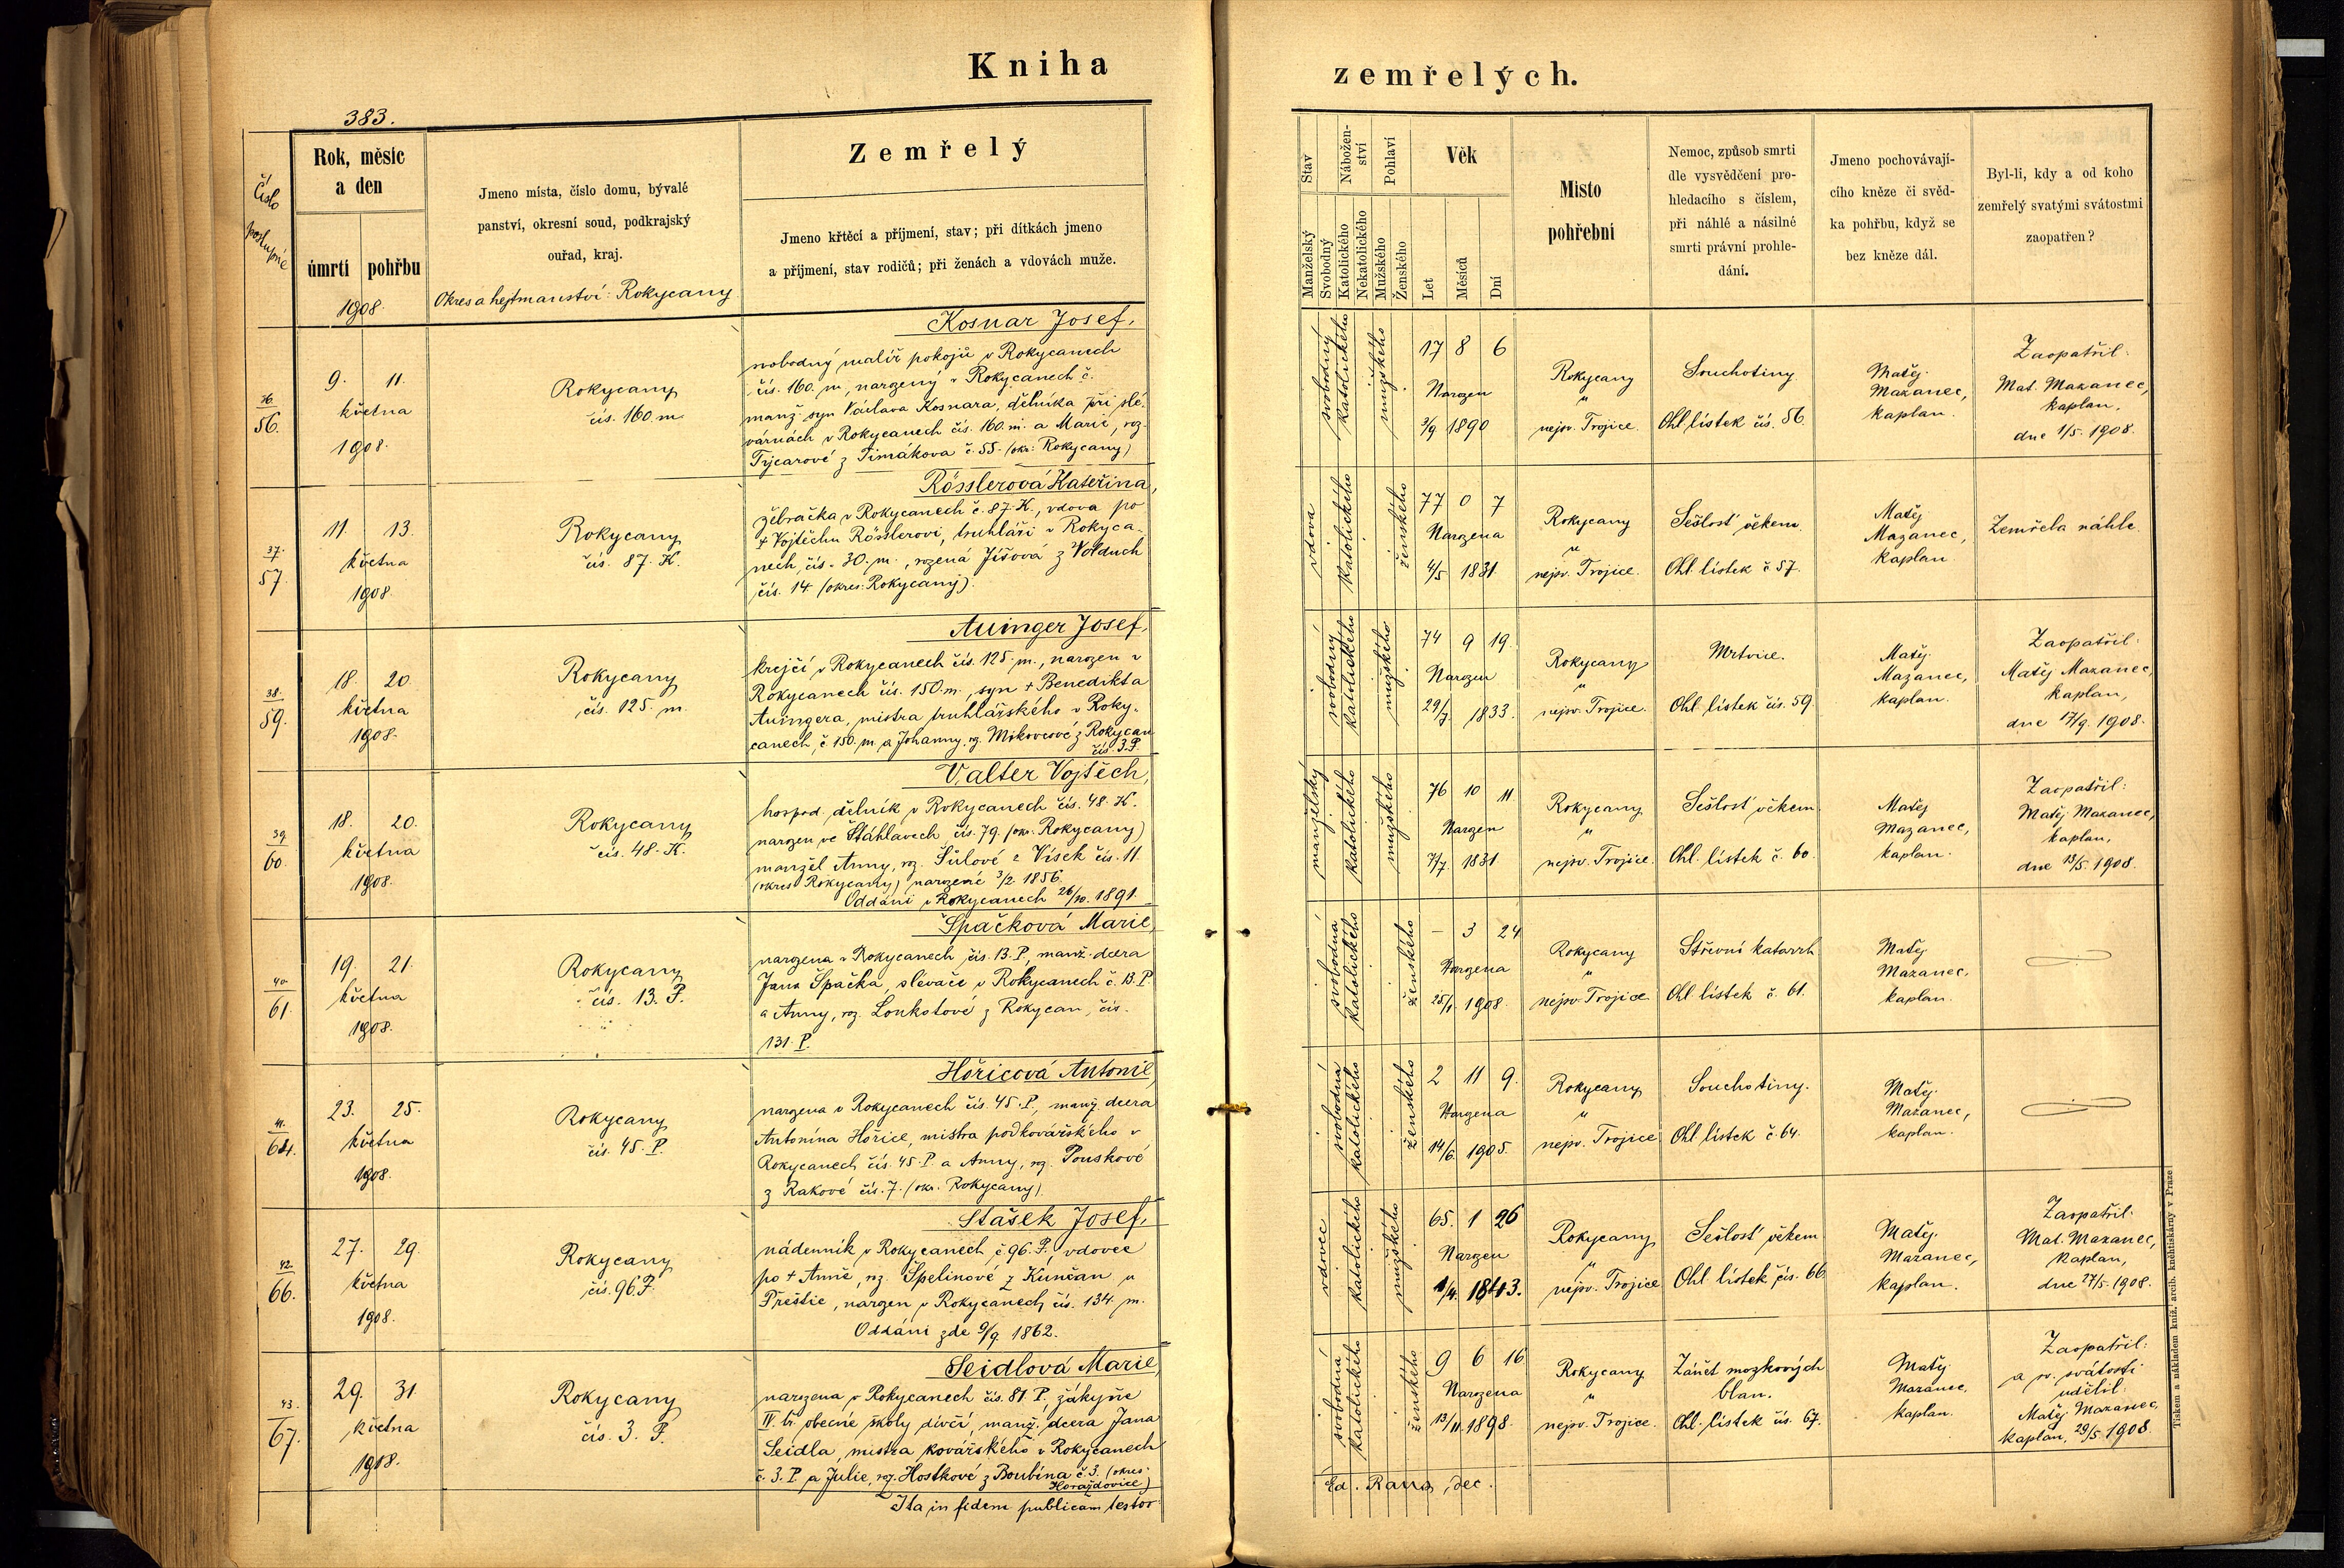 Kniha
zemřelých.
383.
Číslo
postupné
Rok, měsíc
a den
úmrtí
pohřbu
1908.
Jmeno místa, číslo domu, bývalé
panství, okresní soud, podkrajský
ouřad, kraj.
Okres a hejtmanství: Rokycany
Zemřelý
Jmeno křtěcí a příjmení, stav; při dítkách jmeno
a příjmení, stav rodičů; při ženách a vdovách muže.
Stav
Manželský
Svobodný
Nábožen-
ství
Katolického
Nekatolického
Pohlaví
Mužského
Ženského
Věk
Let
Měsíců
Dní
Místo
pohřební
Nemoc, způsob smrti
dle vysvědčení pro-
hledacího s číslem,
při náhlé a násilné
smrti právní prohle-
dání.
Jmeno pochovávají-
cího kněze či svěd-
ka pohřbu, když se
bez kněze dál.
Byl-li, kdy a od koho
zemřelý svatými svátostmi
zaopatřen?
36.
56.
9. 11.
května
1908.
Rokycany
čís. 160. m
Kosnar Josef,
svobodný malíř pokojů v Rokycanech
čís. 160. m, narozený v Rokycanech č.
manž. syn Václava Kosnara, dělníka při slé-
várnách v Rokycanech čís. 160. m. a Marie, roz.
Tycarové z Timákova č. 55. (okr: Rokycany)
svobodný
katolického
mužského
17 8 6
Narozen
3/9. 1890
Rokycany
u
nejsv. Trojice.
Souchotiny
Ohl. lístek čís. 56.
Matěj
Mazanec,
kaplan.
Zaopatřil:
Mat. Mazanec,
kaplan,
dne 1/5. 1908.
37.
57.
11. 13.
května
1908.
Rokycany
čís. 87. K.
Rösslerová Kateřina,
žebračka v Rokycanech č. 87. K., vdova po
+ Vojtěchu Rösslerovi, truhláři v Rokyca-
nech, čís. 30. m., rozená Jíšová z Volduch
čís. 14. (okres: Rokycany).
vdova
katolického
ženského
77 0 7
Narozena
4/5 1831
Rokycany
u
nejsv. Trojice.
Sešlosť věkem.
Ohl. lístek č. 57.
Matěj
Mazanec,
kaplan
Zemřela náhle.
38.
59.
18. 20.
května
1908.
Rokycany
čís. 125. m.
Auinger Josef,
krejčí v Rokycanech čís. 125. m., narozen v
Rokycanech čís. 150. m., syn + Benedikta
Auingera, mistra truhlářského v Roky-
canech, č. 150. m. a Johanny, rz. Mikovcové z Rokycan
čís. 3. P.
svobodný
katolického
mužského
74 9 19.
Narozen
29/7. 1833.
Rokycany
u
nejsv. Trojice.
Mrtvice.
Ohl. lístek čís. 59.
Matěj
Mazanec,
kaplan.
Zaopatřil:
Matěj Mazanec,
kaplan,
dne 17/9. 1908.
39.
60.
18. 20.
května
1908.
Rokycany
čís. 48. K.
Valter Vojtěch,
hospod. dělník v Rokycanech čís. 48. K.
narozen ve Štáhlavech čís. 79. (okr. Rokycany)
manžel Anny, rz. Šůlové z Vísek čís. 11.
(okres Rokycany) narozené 3/2. 1856.
Oddáni v Rokycanech 26/10. 1891.
manželský
katolického
mužského
76 10 11
Narozen
7/7. 1831.
Rokycany
u
nejsv. Trojice.
Sešlosť věkem.
Ohl. lístek č. 60.
Matěj
Mazanec,
kaplan.
Zaopatřil:
Matěj Mazanec,
kaplan,
dne 13/5. 1908.
40.
61.
19. 21.
května
1908.
Rokycany
čís. 13. P.
Špačková Marie,
narozena v Rokycanech čís. 13. P, manž. dcera
Jana Špačka, slévače v Rokycanech č. 13. P.
a Anny, rz. Loukotové z Rokycan, čís.
131. P.
svobodná
katolického
ženského
– 3 24
Narozena
25/1. 1908.
Rokycany
u
nejsv. Trojice.
Střevní katarrh
Ohl. lístek č. 61.
Matěj
Mazanec,
kaplan.
41.
64.
23. 25.
května
1908.
Rokycany
čís. 45. P.
Hořicová Antonie,
narozena v Rokycanech čís. 45. P., manž. dcera
Antonína Hořice, mistra podkovářského v
Rokycanech čís. 45. P. a Anny, rz. Pouskové
z Rakové čís. 7. (okr. Rokycany).
svobodná
katolického
ženského
2 11 9.
Narozena
14/6. 1905.
Rokycany
u
nejsv. Trojice
Souchotiny.
Ohl. lístek č. 64.
Matěj
Mazanec,
kaplan.
42.
66.
27. 29.
května
1908.
Rokycany
čís. 96. P.
Stašek Josef,
nádenník v Rokycanech č. 96. P. vdovec
po + Anně, rz. Špelinové z Kunčan u
Přeštic, narozen v Rokycanech, čís. 134. m.
Oddáni zde 9/9. 1862.
vdovec
katolického
mužského
65. 1 26
Narozen
1/4. 1843.
Rokycany
u
nejsv. Trojice
Sešlosť věkem
Ohl. lístek čís. 66.
Matěj
Mazanec,
kaplan.
Zaopatřil:
Mat. Mazanec,
kaplan,
dne 27/5. 1908.
43.
67.
29. 31.
května
1908.
Rokycany
čís. 3. P.
Seidlová Marie,
narozena v Rokycanech čís. 81. P., žákyně
IV. tř. obecné školy dívčí, manž. dcera Jana
Seidla, mistra kovářského v Rokycanech
č. 3. P. a Julie, roz. Hostkové z Boubína č. 3. (okres:
Horažďovice)
svobodná
katolického
ženského
9 6 16
Narozena
13/11. 1898.
Rokycany
u
nejsv. Trojice.
Zánět mozkových
blan.
Ohl. lístek čís. 67.
Matěj
Mazanec,
kaplan.
Zaopatřil:
a sv. svátosti
udělil:
Matěj Mazanec,
kaplan, 29/5. 1908.
Ita in fidem publicam testor
Ed. Rana, dec.
Tiskem a nákladem kníž. arcib. knihtiskárny v Praze.